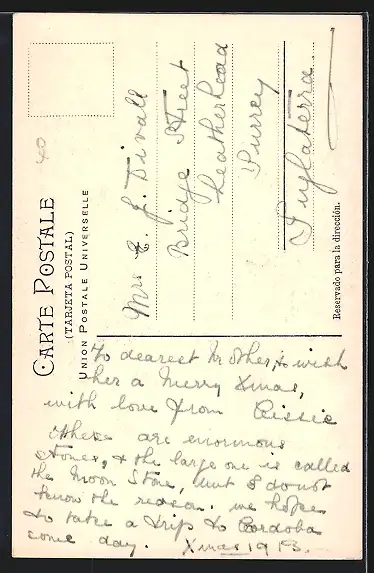 CARTE POSTALE
(TARJETA POSTAL)
UNION POSTALE UNIVERSELLE
40
Mrs E. J. Divall
Bridge Street
Leatherhead
Surrey
Inglaterra.
Reservado para la dirección.
To dearest Mother, to wish
her a Merry Xmas,
with love from Cissie
These are enormous
stones, & the large one is called
the Moon Stone, but I do not
know the reason. We hope
to take a trip to Cordoba
some day. Xmas 1913.